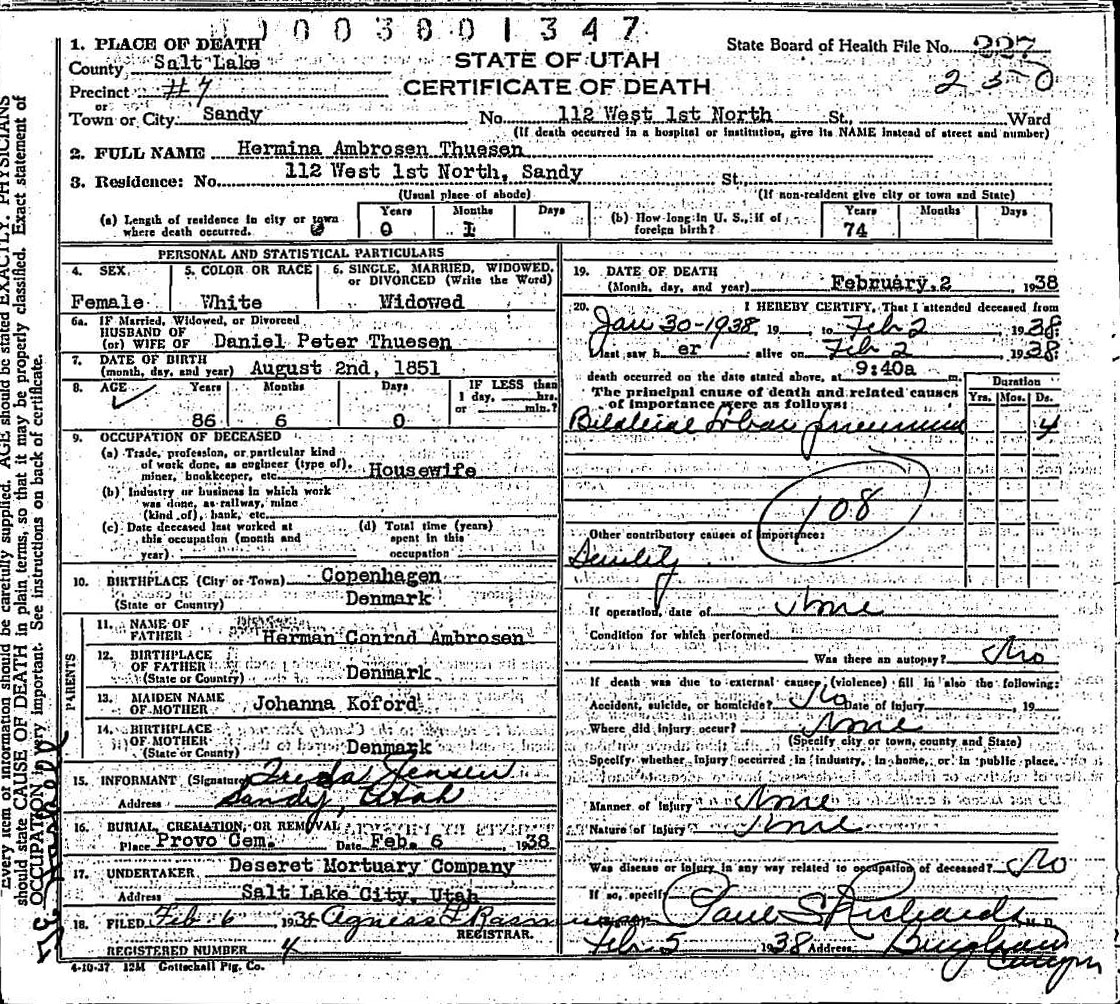 003801347
1. PLACE OF DEATH
County Salt Lake
STATE OF UTAH
State Board of Health File No. 227
Precinct #7
CERTIFICATE OF DEATH
230
or
Town or City Sandy No. 112 West 1st North St., Ward
(If death occurred in a hospital or institution, give its NAME instead of street and number)
2. FULL NAME Hermina Ambrosen Thuesen
3. Residence: No. 112 West 1st North, Sandy St.
(Usual place of abode) (If non-resident give city or town and State)
(a) Length of residence in city or town where death occurred. 0 Years 0 Months 1 Days
(b) How long in U. S., if of foreign birth? Years 74 Months Days
PERSONAL AND STATISTICAL PARTICULARS
4. SEX 5. COLOR OR RACE 6. SINGLE, MARRIED, WIDOWED, or DIVORCED (Write the Word)
Female White Widowed
6a. IF Married, Widowed, or Divorced
HUSBAND OF
(or) WIFE OF Daniel Peter Thuesen
7. DATE OF BIRTH
(month, day, and year) August 2nd, 1851
8. AGE Years Months Days IF LESS than 1 day, hrs. or min.?
86 6 0
9. OCCUPATION OF DECEASED
(a) Trade, profession, or particular kind
of work done, as engineer (type of),
miner, bookkeeper, etc. Housewife
(b) Industry or business in which work
was done, as railway, mine
(kind of), bank, etc.
(c) Date deceased last worked at this occupation (month and year)
(d) Total time (years) spent in this occupation
10. BIRTHPLACE (City or Town) Copenhagen
(State or Country) Denmark
PARENTS
11. NAME OF FATHER Herman Conrad Ambrosen
12. BIRTHPLACE OF FATHER
(State or Country) Denmark
13. MAIDEN NAME OF MOTHER Johanna Koford
14. BIRTHPLACE OF MOTHER
(State or Country) Denmark
15. INFORMANT (Signature) Freda Jensen
Address Sandy, Utah
16. BURIAL, CREMATION, OR REMOVAL
Place Provo Cem. Date Feb. 6 1938
17. UNDERTAKER Deseret Mortuary Company
Address Salt Lake City, Utah
18. FILED Feb 6 1938 Agness
REGISTRAR.
REGISTERED NUMBER 4
4-10-37 12M Gottschall Ptg. Co.
19. DATE OF DEATH
(Month, day, and year) February, 2 1938
20. I HEREBY CERTIFY, That I attended deceased from
Jan 30-1938, 19 to Feb 2 1938
I last saw h er alive on Feb 2 1938
death occurred on the date stated above, at 9:40a m.
The principal cause of death and related causes
of importance were as follows:
Duration
Yrs. Mos. Ds.
Bilateral lobar pneumonia 4
108
Other contributory causes of importance:
Senility
If operation, date of None
Condition for which performed
Was there an autopsy? No
If death was due to external causes (violence) fill in also the following:
Accident, suicide, or homicide? No Date of injury 19
Where did injury occur? None
(Specify city or town, county and State)
Specify whether injury occurred in industry, in home, or in public place.
Manner of Injury None
Nature of Injury None
Was disease or injury in any way related to occupation of deceased? No
If so, specify
Paul S Richards M. D.
Feb 5 1938 Address Bingham
Canyon
Every item of information should be carefully supplied. AGE should be stated EXACTLY. PHYSICIANS
should state CAUSE OF DEATH in plain terms, so that it may be properly classified. Exact statement of
OCCUPATION is very important. See instructions on back of certificate.